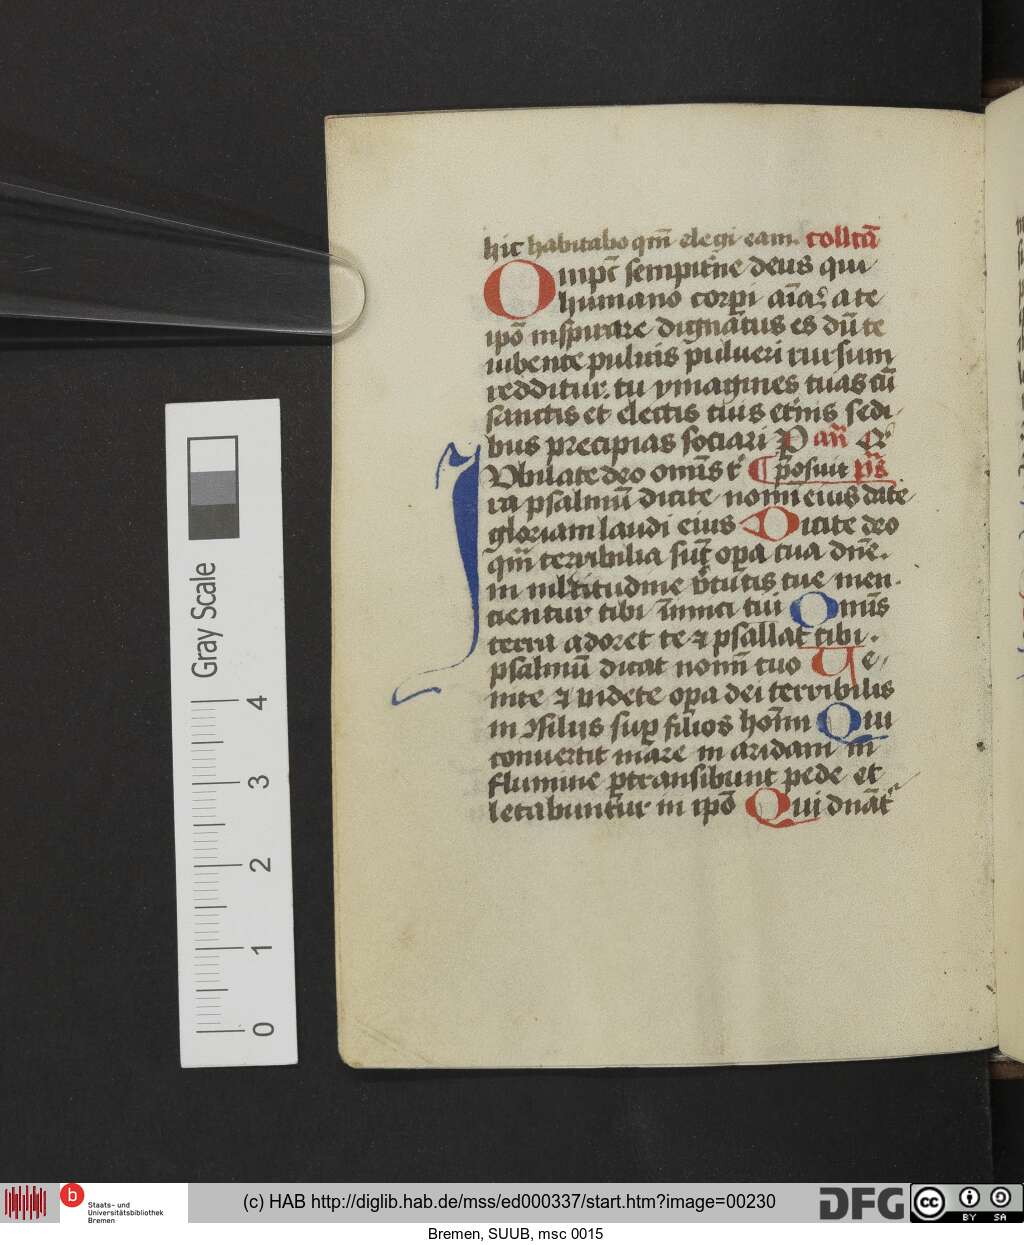 hic habitabo qm̄ elegi eam. collcā
Omp̄t sempit̄ne deus qui
humano corꝑi aīaꝫ a te
ipō inspirare dignatus es dū te
iubente puluis pulueri rursum
redditur. tu ymagines tuas cū
sanctis et electis tuis et̄nis sedi
bus precipias sociari P an̄
Vbilate deo om̄s t̄ ¶ posuit p̄s
ra psalmū dicite nom̄i eius date
gloriam laudi eius Dicite deo
qm̄ terribilia sūt oꝑa tua dn̄e.
in mltitudine v̄tutis tue men
cientur tibi inimici tui Omīs
terra adoret te ⁊ psallat tibi.
psalmū dicat nom̄i tuo Ve
nite ⁊ videte oꝑa dei terribilis
in ↄsilijs suꝑ filios hom̄i Qui
conuertit mare in aridam in
flumine ꝑtransibunt pede et
letabuntur in ipō Qui dn̄at̄
Gray Scale
4
3
2
1
0
b
Staats- und
Universitätsbibliothek
Bremen
(c) HAB http://diglib.hab.de/mss/ed000337/start.htm?image=00230
DFG
cc BY SA
Bremen, SUUB, msc 0015